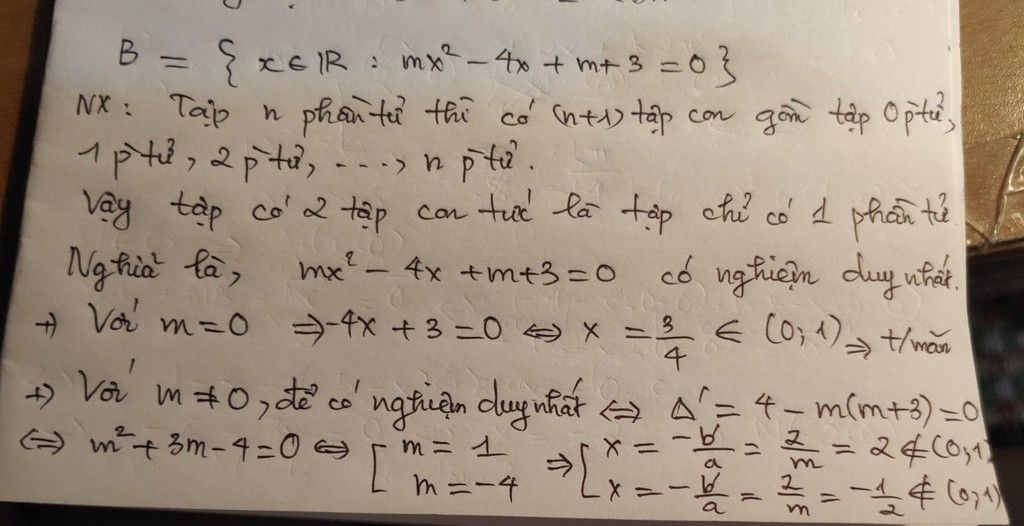 B = { x ∈ ℝ : mx² - 4x + m + 3 = 0 }
NX : Tập n phần tử thì có (n+1) tập con gồm tập 0 p̀tử,
1 p̀tử, 2 p̀tử, ...., n p̀tử.
Vậy tập có 2 tập con tức là tập chỉ có 1 phần tử
Nghĩa là, mx² - 4x + m + 3 = 0 có nghiệm duy nhất.
+) Với m = 0 ⇒ -4x + 3 = 0 ⇔ x = 3/4 ∈ (0; 1) ⇒ t/mãn
+) Với m ≠ 0, để có nghiệm duy nhất ⇔ Δ' = 4 - m(m+3) = 0
⇔ m² + 3m - 4 = 0 ⇔ [ m = 1 ⇒ [ x = -b'/a = 2/m = 2 ∉ (0; 1)
m = -4 x = -b'/a = 2/m = -1/2 ∉ (0; 1)